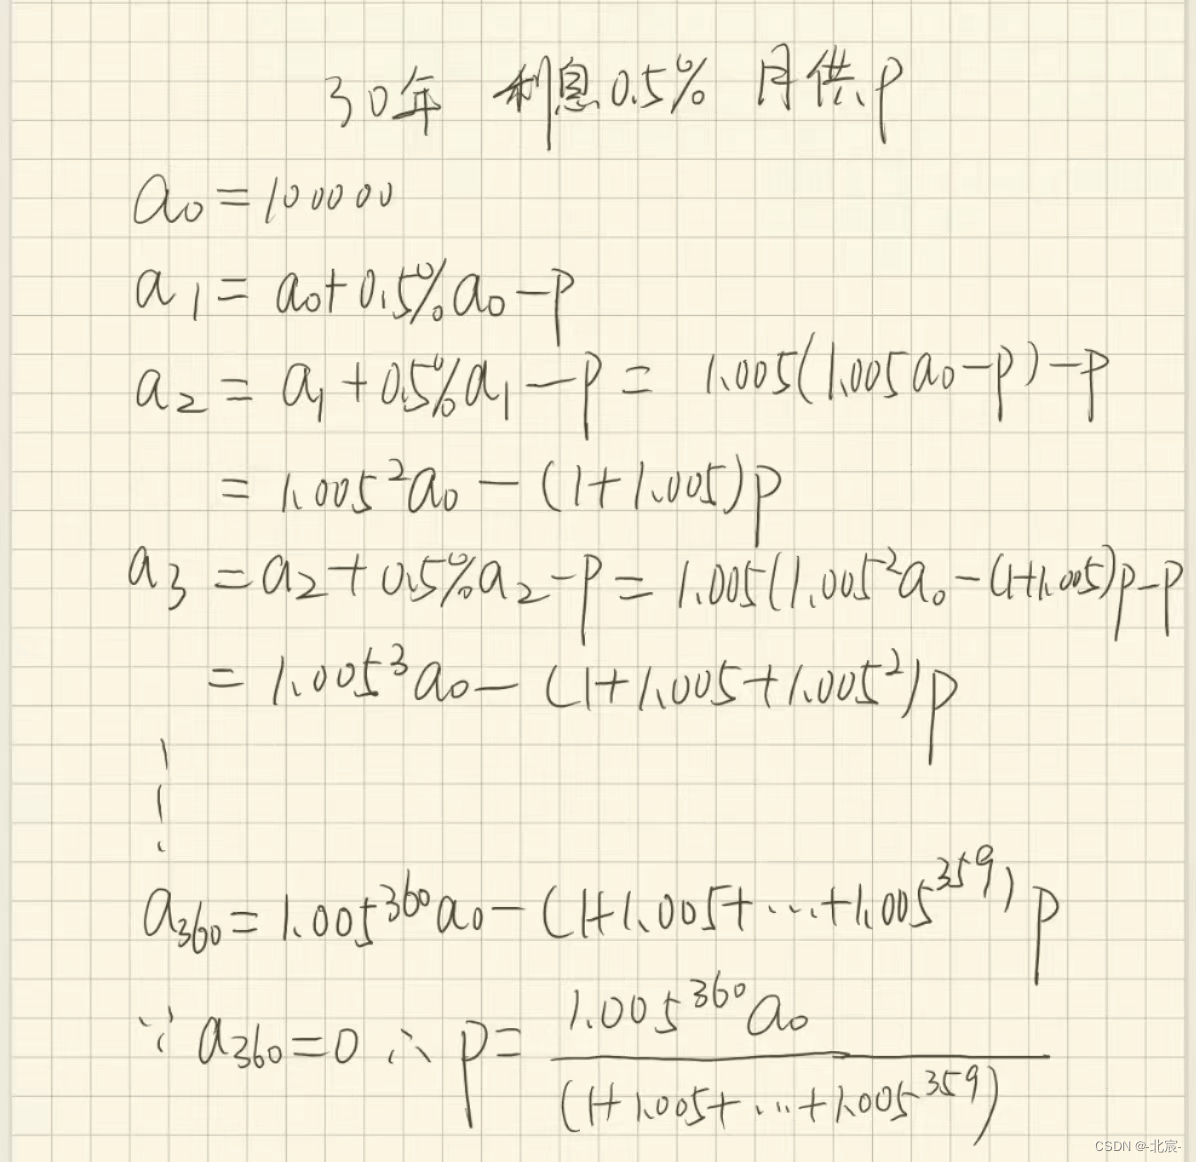 30年 利息0.5% 月供p
a₀=100000
a₁= a₀+0.5%a₀-p
a₂ = a₁+0.5%a₁-p = 1.005(1.005a₀-p)-p
= 1.005²a₀ - (1+1.005)p
a₃ =a₂+0.5%a₂-p= 1.005(1.005²a₀-(1+1.005)p-p
= 1.005³a₀- (1+1.005+1.005²)p
a₃₆₀= 1.005³⁶⁰a₀- (1+1.005+...+1.005³⁵⁹)p
∵ a₃₆₀=0 ∴ p= 1.005³⁶⁰a₀
(1+1.005+...+1.005³⁵⁹)
CSDN @-北宸-